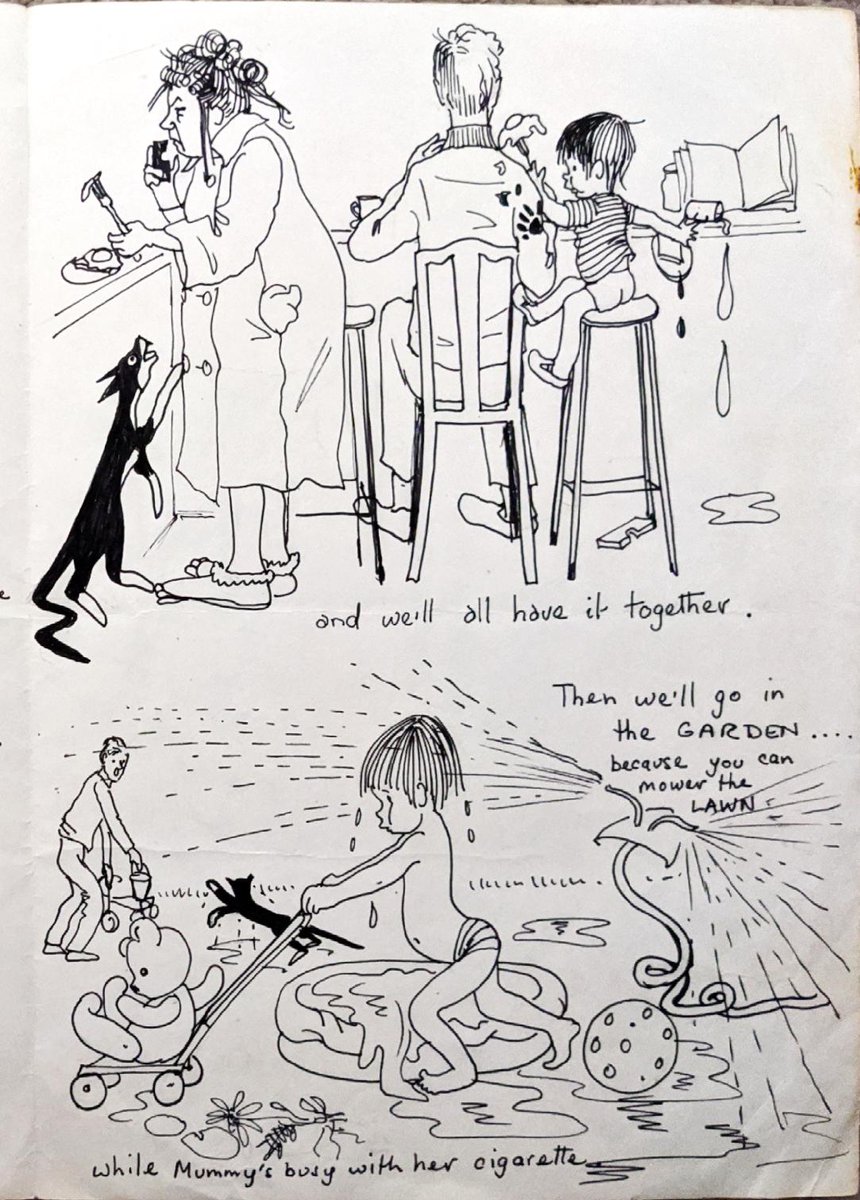 and we'll all have it together.
Then we'll go in
the GARDEN ....
because you can
mower the
LAWN
while Mummy's busy with her cigarette